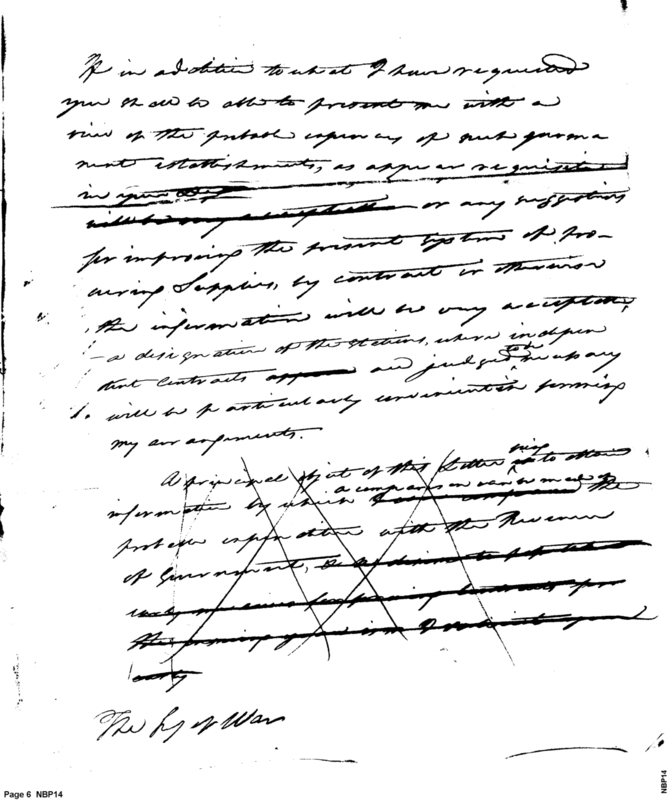 If in addition to what I have requested
you shall be able to present me with a
view of the probable expences of such garma
nent establishments, as appear requisite
in your
will be very acceptable or any suggestions
for improving the present System of pro-
curing Supplies, by contract or otherwise
the information will be very acceptable;
- a designation of the stations, where indepen
dent Contracts appear are judged to be necessary
will be particularly convenient in forming
my arrangements.
A principal object of this Letter being is to obtain
information by which a comparison can be made of the
probable expenditure with the Revenue
of Government,
early measures for forming Contracts for
the ensuing year
early
The Sy of War
Page 6 NBP14
NBP14